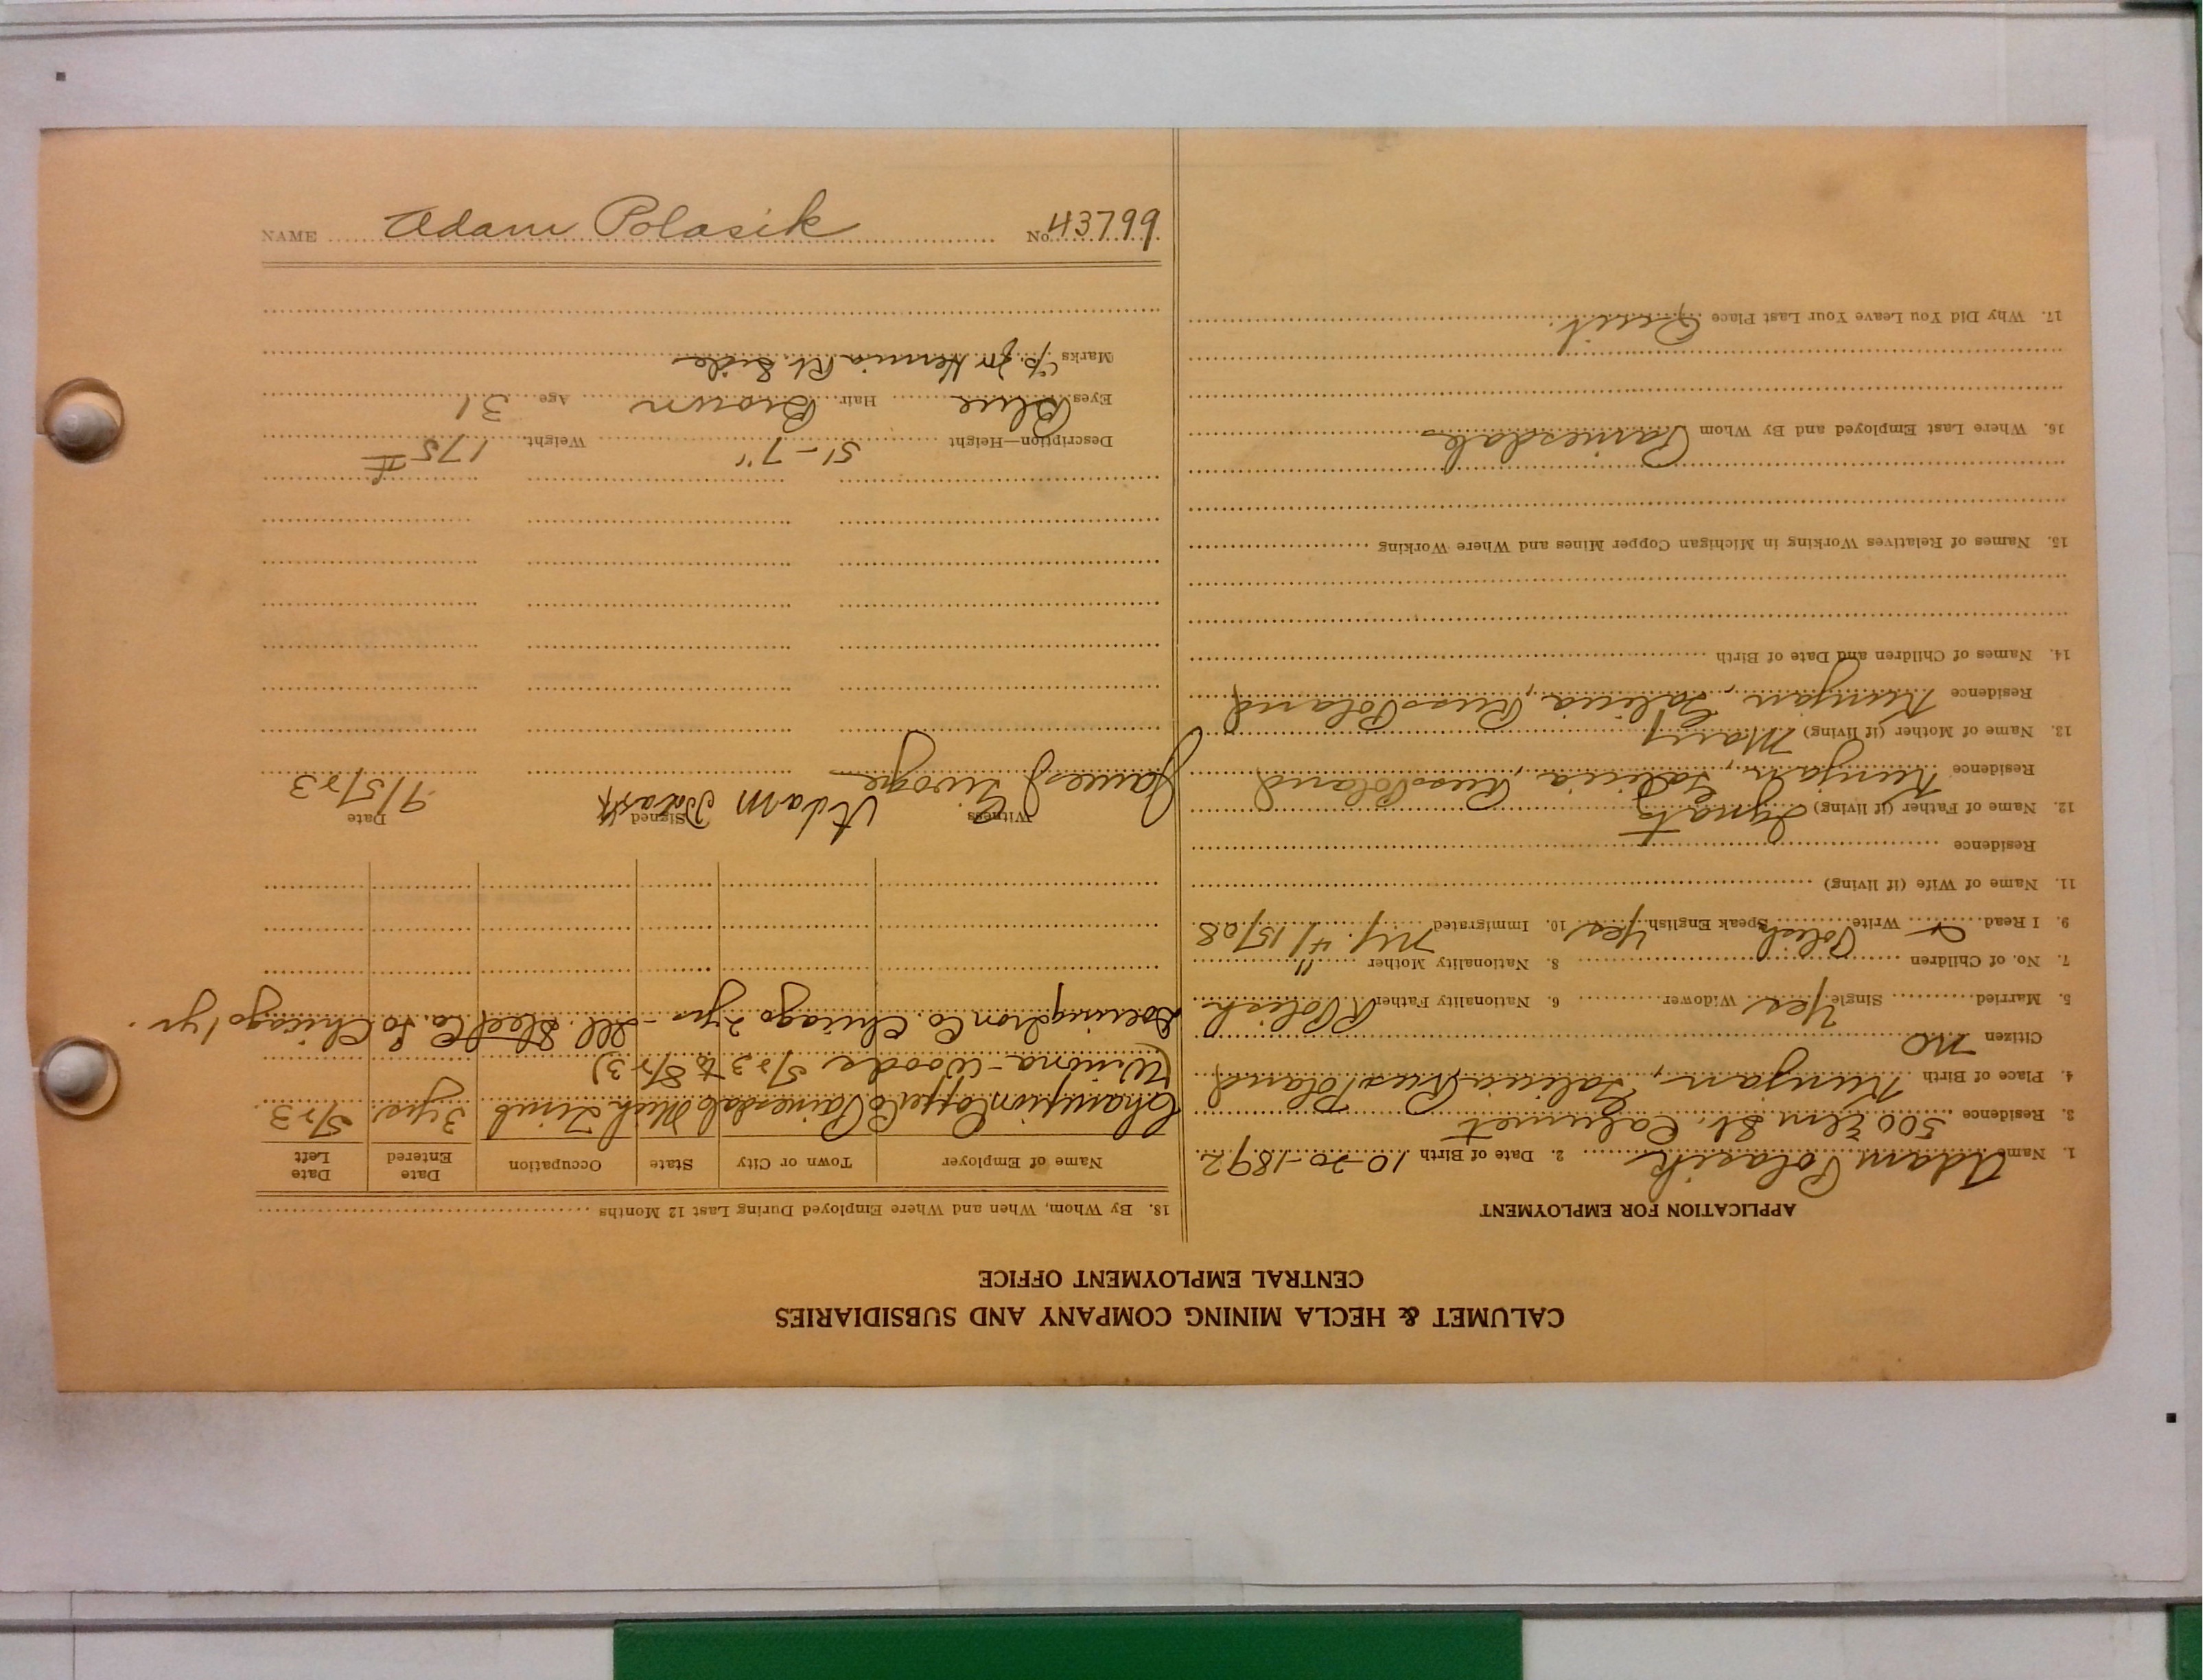 NAME Adam Polasik No. 43799
CALUMET & HECLA MINING COMPANY AND SUBSIDIARIES
CENTRAL EMPLOYMENT OFFICE
APPLICATION FOR EMPLOYMENT
1. Name Adam Polasik 2. Date of Birth 10-20-1892
3. Residence 500 Elm St. Calumet
4. Place of Birth Galicia, Russ Poland
Citizen No
5. Married Single Yes Widower 6. Nationality Father Polish
7. No. of Children 8. Nationality Mother "
9. I Read & Write Polish Speak English Yes 10. Immigrated N.Y. 4/15/08
11. Name of Wife (if living)
Residence
12. Name of Father (if living) Ignatz
Residence Galicia, Russ Poland
13. Name of Mother (if living) Mary
Residence Galicia, Russ Poland
14. Names of Children and Date of Birth
15. Names of Relatives Working in Michigan Copper Mines and Where Working
16. Where Last Employed and By Whom Painesdale
17. Why Did You Leave Your Last Place Quit.
18. By Whom, When and Where Employed During Last 12 Months
Name of Employer Town or City State Occupation Date Entered Date Left
Champion Copper Co Painesdale Mich Timb 3 yrs. 5/23.
(Winona - Woods 5/23 to 8/23)
Iron Co. Chicago 2 yrs - Ill. Steel Co. So Chicago 1 yr.
Witness Signed Date
James J. Adam Polasik 9/5/23
Description—Height 5'-7" Weight 175 #
Eyes Blue Hair Brown Age 31
Marks Op. for Hernia Rt. Side